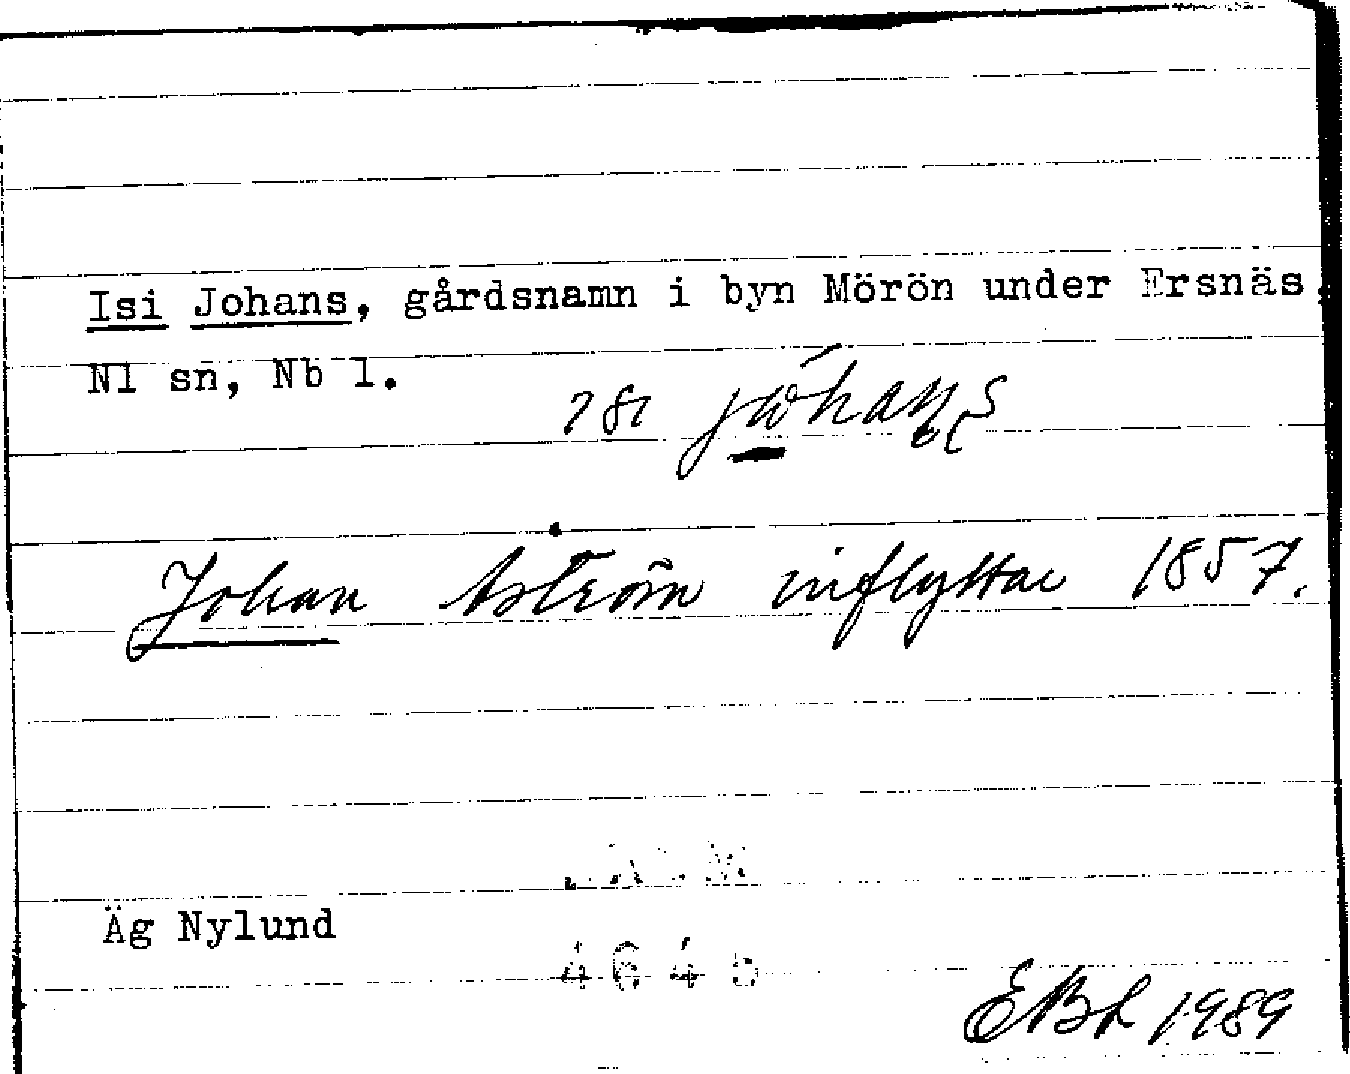 Isi Johans, gårdsnamn i byn Mörön under Ersnäs,
Nl sn, Nb l.
Johan Åström inflyttar 1857.
Äg Nylund
4645
EBL 1989